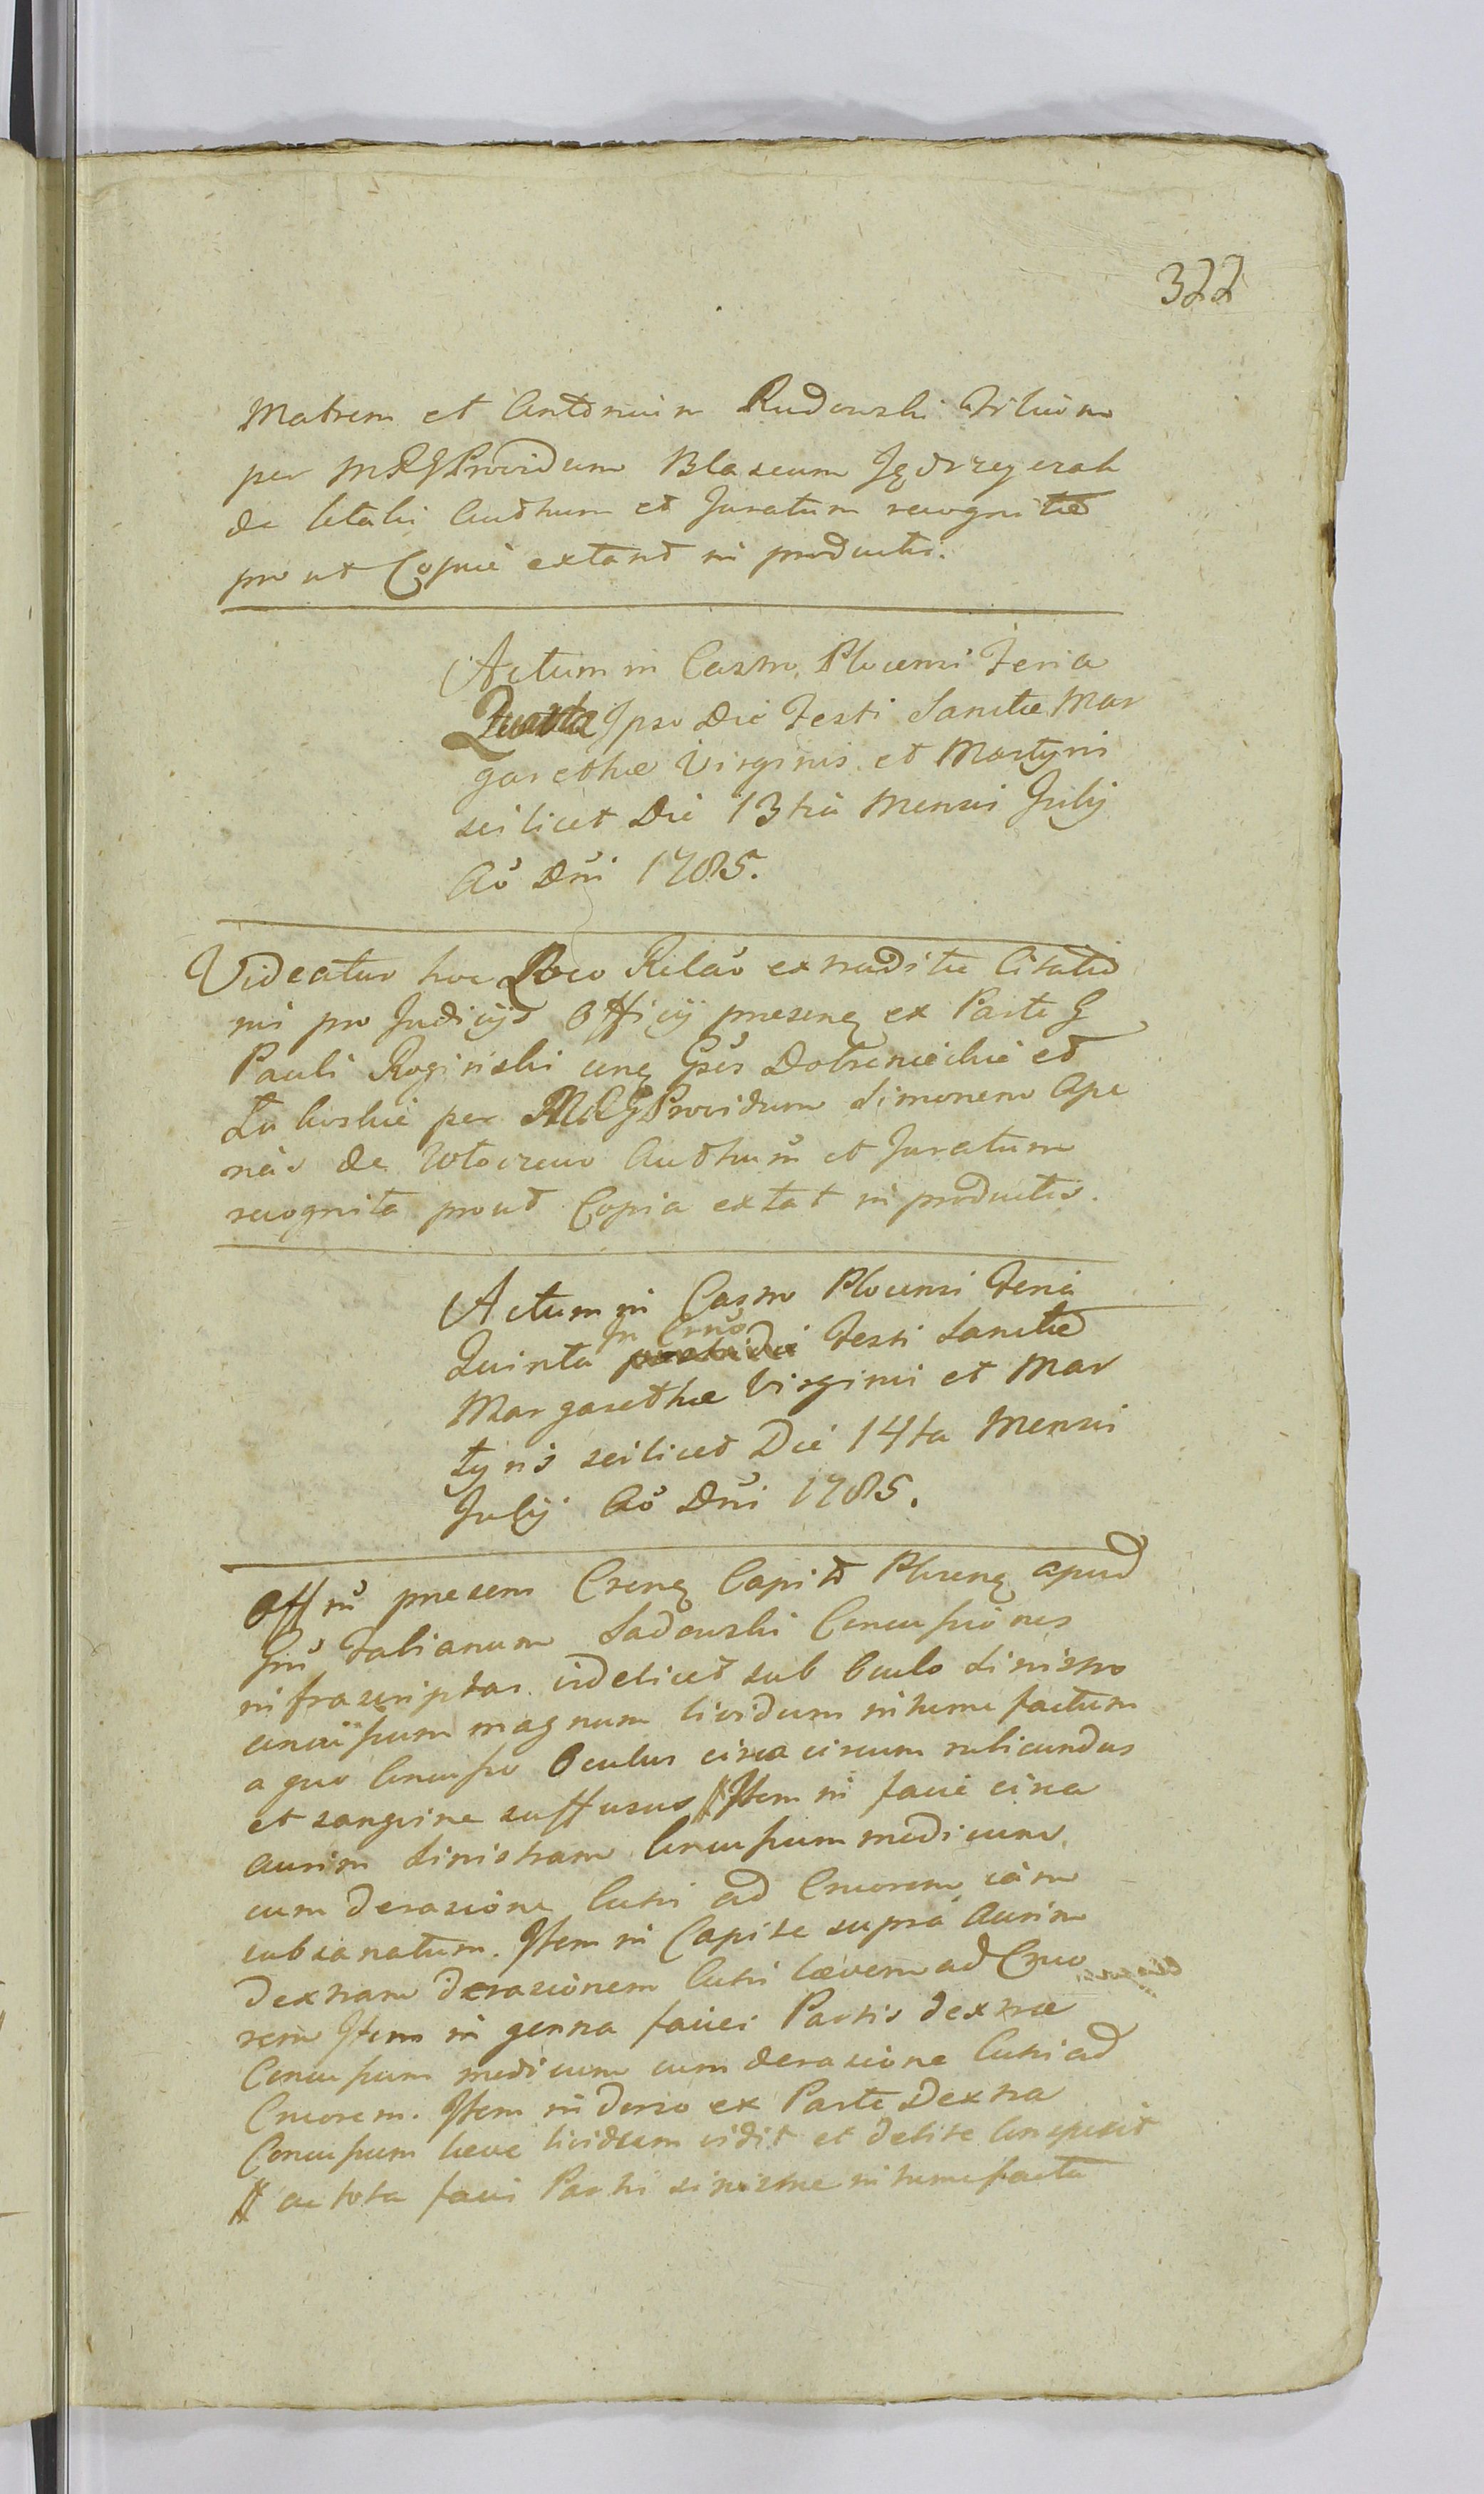 322
Matrem et Antonium Rudowski Filium
per MRGProvidum Blasium Jędrzeyczak
de Utaty Authum et Juratum recognitæ
prout Copiæ extant in productis.
Actum in Castro Plocensi Feria
Quarta Ipso Die Festi Sanctæ Mar
garethæ Virginis et Martyris
scilicet Die 13tia Mensis Julij
Aõ Dni 1785.
Videatur hoc Loco Relaõ extraditæ Citatio
nis pro Judicijs Officij præsenq ex Parte G
Pauli Roginski cenq Gsos Dobrznieckie et
per MRGProvidum Simonem
de Authum et Juratum
recognita prout Copia extat in productis.
Actum in Castro Plocensi Feria
Quinta In Crno postridie Festi Sanctæ
Margarethæ Virginis et Mar
tyris scilicet Die 14ta Mensis
Julij Aõ Dni 1785.
Offm præsens Crenq Capit Plocenq apud
Gm Fabianum Sadowski Concussiones
infrascriptas videlicet sub Oculo sinistro
concussum magnum lividum intumefactum
a quo Concusso Oculus circa circum rubicundus
et sangvine suffusus # Item in facie circa
aurim sinistram Concussum modicum
cum derasione Cutis ad Cruorem iam
subsanatum. Item in Capite supra Aurim
dextram derasionem Cutis lævem ad Cruo
rem Item in genna faciei Partis dextræ
Concussum modicum cum derasione Cutis ad
Cruorem. Item in dorso ex Parte Dextra
Concussum læve lividum vidit et debite conspexit
# ac tota facis Partis sinistræ intumefacta